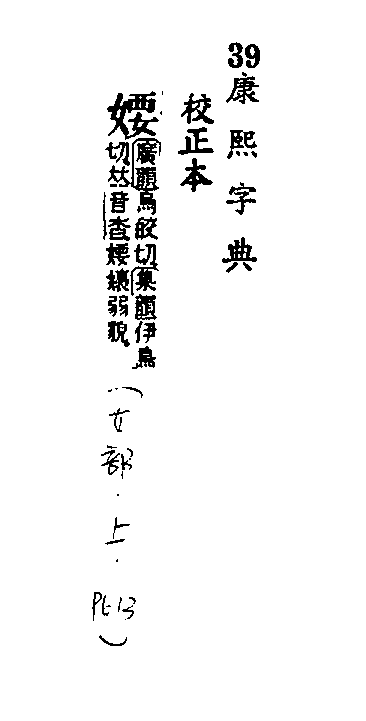 39
康熙字典
校正本
婹
廣韻烏皎切集韻伊鳥
切𠀤音杳婹嬝弱貌
(女部.上.P13)